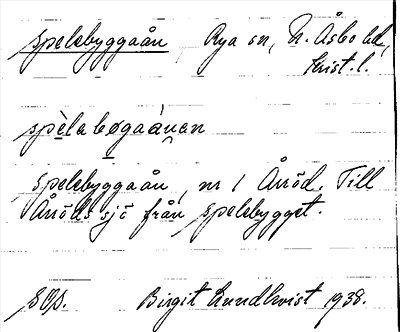 Spelebyggaån, Rya sn, N. Åsbo hd,
Krist. l.
spèlabøgaánan
Spelebyggaån, nr 1 Årröd. Till
Årröds sjö från Spelebygget.
SOs. Birgit Lundkvist 1938.